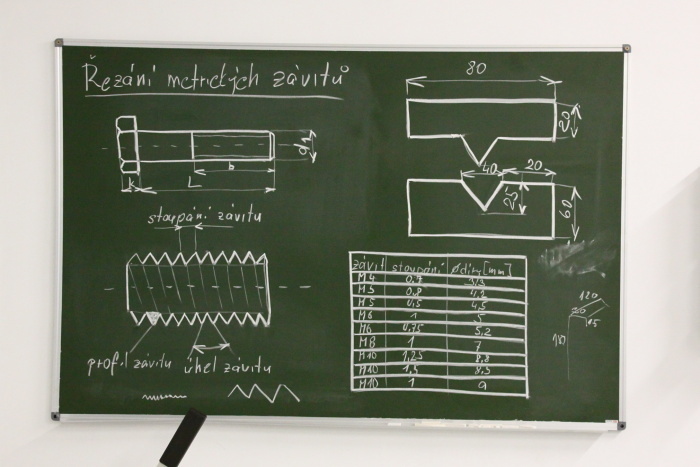 Řezání metrických závitů
80
20
d1
b
k
L
40
20
25
60
stoupání závitu
závit stoupání ødíry[mm]
M4 0,7 3,3
M5 0,8 4,2
M5 0,5 4,5
M6 1 5
M6 0,75 5,2
M8 1 7
M10 1,25 8,8
M10 1,5 8,5
M10 1 9
120
20
15
profil závitu úhel závitu